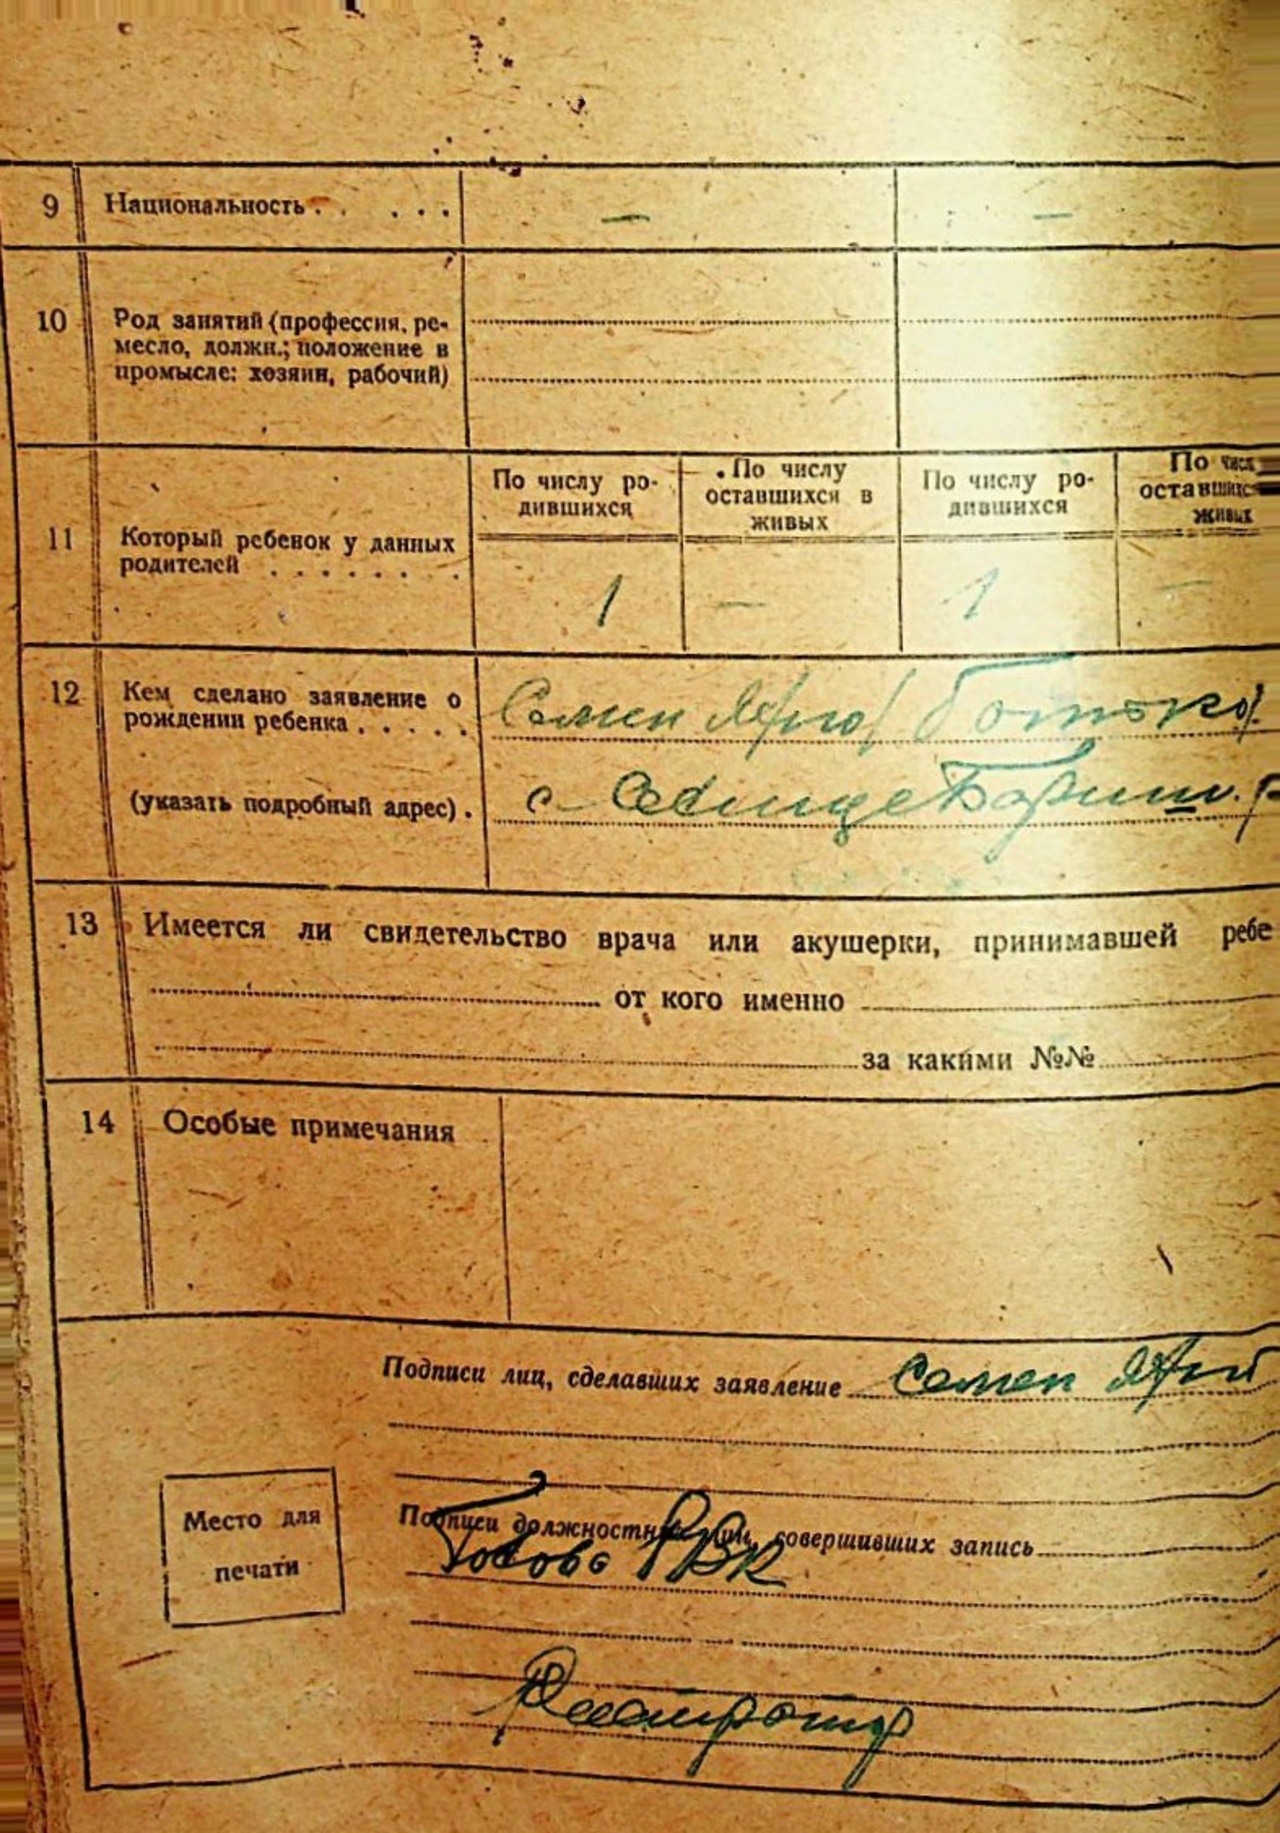 9 Национальность . . . . . — —
10 Род занятий (профессия, ре-
месло, должн.; положение в
промысле: хозяин, рабочий)
По числу ро- По числу По числу ро- По числ
дившихся оставшихся в дившихся оставшихс
живых живых
11 Который ребенок у данных
родителей . . . . . . . 1 — 1 —
12 Кем сделано заявление о
рождении ребенка . . . . . Семен
(указать подробный адрес) . с
13 Имеется ли свидетельство врача или акушерки, принимавшей ребе
от кого именно
за какими №№
14 Особые примечания
Подписи лиц, сделавших заявление Семен
Подписи должностных лиц, совершивших запись
Место для
печати
Голова